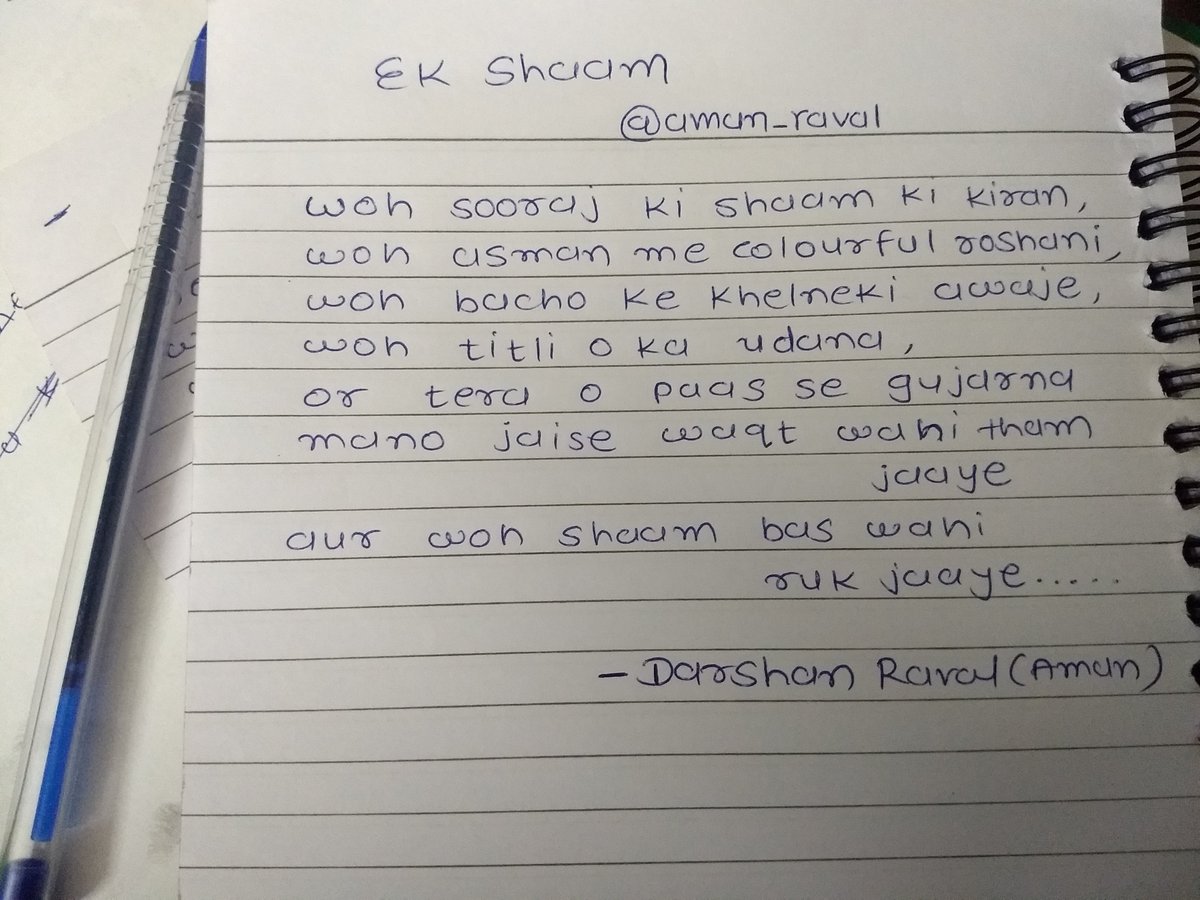 Ek Shaam
@aman_raval
woh sooraj ki shaam ki kiran,
woh asman me colourful roshani,
woh bacho ke khelneki awaje,
woh titli o ka udana,
or tera o paas se gujarna
mano jaise waqt wahi tham
jaaye
aur woh shaam bas wahi
ruk jaaye.....
- Darshan Raval (Aman)